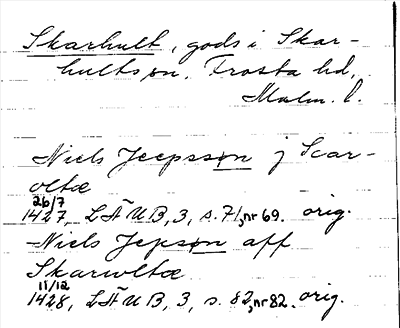 Skarhult, gods i Skar-
hults sn. Frosta hd,
Malm. l.
Niels Jeepsson j Scar-
oltæ
26/7
1427, LÄUB, 3, s. 71, nr 69. orig.
Niels Jepson aff
Skarwoltæ
11/12
1428, LÄUB, 3, s. 82, nr 82. orig.